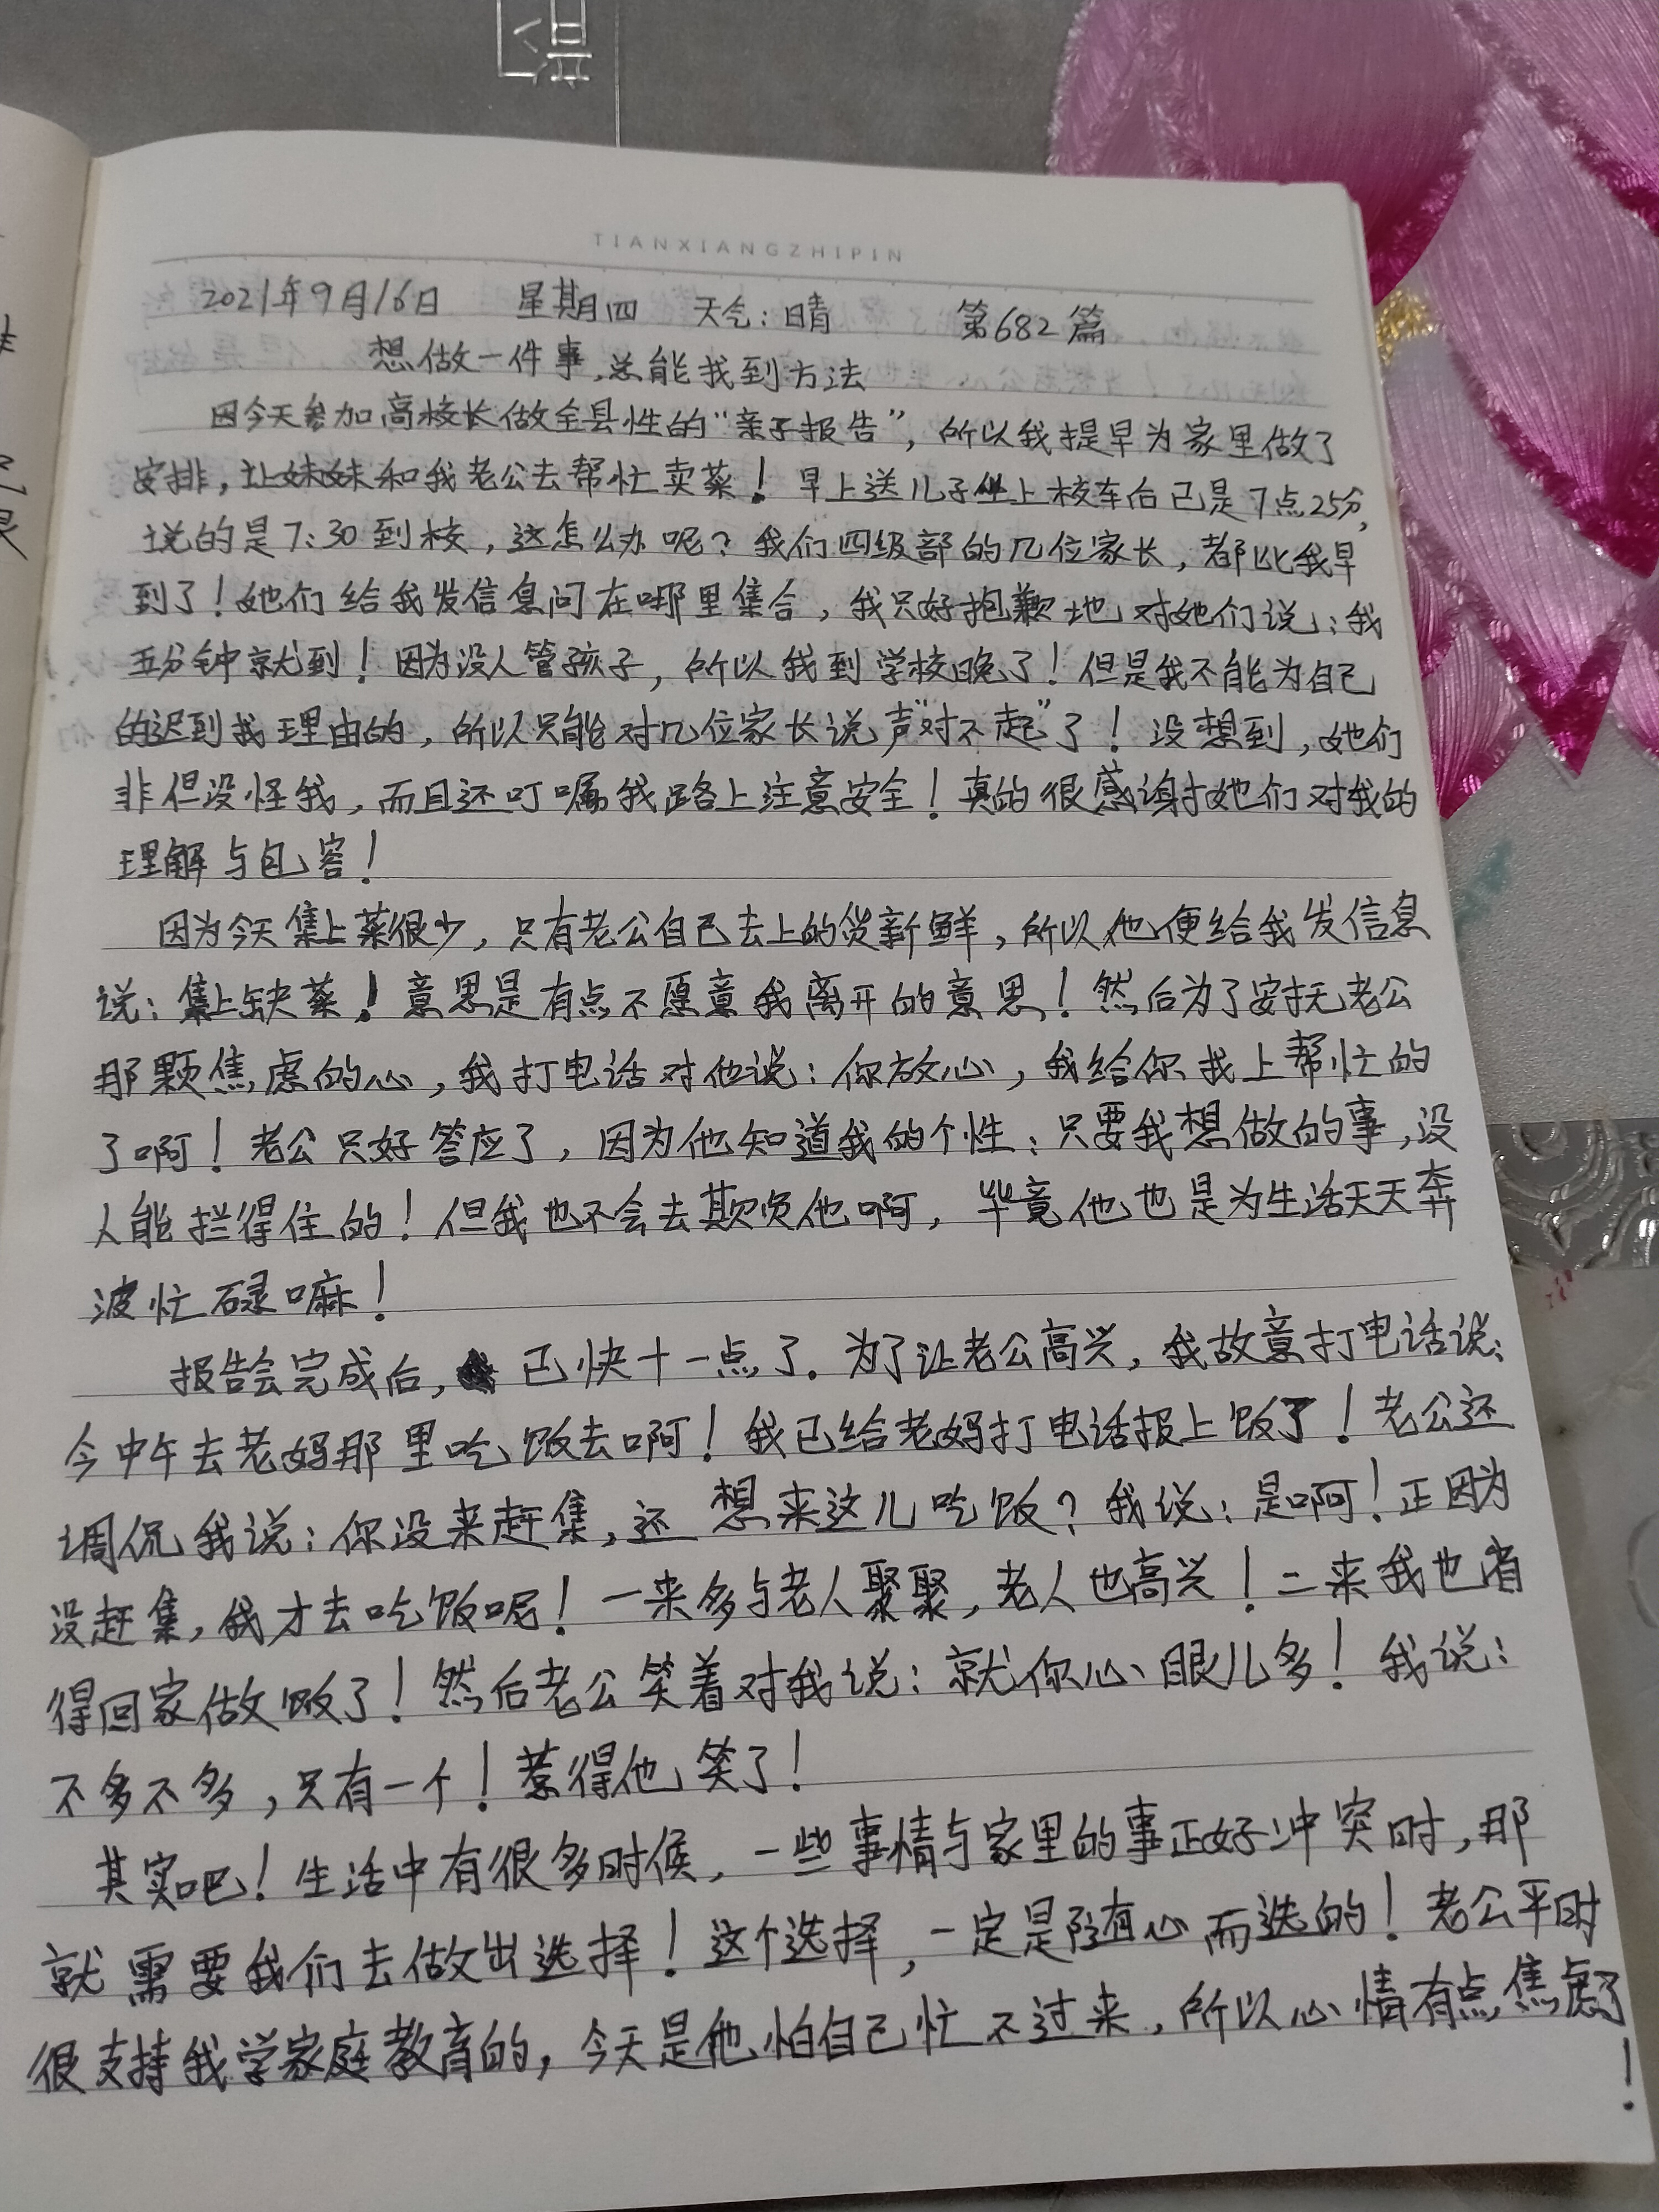 TIANXIANGZHIPIN
2021年9月16日 星期四 天气:晴 第682篇
想做一件事,总能找到方法
因今天参加高校长做全县性的“亲子报告”,所以我提早为家里做了
安排,让妹妹和我老公去帮忙卖菜!早上送儿子坐上校车后已是7点25分,
说的是7:30到校,这怎么办呢?我们四级部的几位家长,都比我早
到了!她们给我发信息问在哪里集合,我只好抱歉地对她们说:我
五分钟就到!因为没人管孩子,所以我到学校晚了!但是我不能为自己
的迟到找理由的,所以只能对几位家长说声“对不起”了!没想到,她们
非但没怪我,而且还叮嘱我路上注意安全!真的很感谢她们对我的
理解与包容!
因为今天集上菜很少,只有老公自己去上的货新鲜,所以他便给我发信息
说:集上缺菜!意思是有点不愿意我离开的意思!然后为了安抚老公
那颗焦虑的心,我打电话对他说:你放心,我给你找上帮忙的
了啊!老公只好答应了,因为他知道我的个性:只要我想做的事,没
人能拦得住的!但我也不会去欺负他啊,毕竟他也是为生活天天奔
波忙碌嘛!
报告会完成后,已快十一点了.为了让老公高兴,我故意打电话说:
今中午去老妈那里吃饭去啊!我已给老妈打电话报上饭了!老公还
调侃我说:你没来赶集,还想来这儿吃饭?我说:是啊!正因为
没赶集,我才去吃饭呢!一来多与老人聚聚,老人也高兴!二来我也省
得回家做饭了!然后老公笑着对我说:就你心眼儿多!我说:
不多不多,只有一个!惹得他笑了!
其实吧!生活中有很多时候,一些事情与家里的事正好冲突时,那
就需要我们去做出选择!这个选择,一定是随心而选的!老公平时
很支持我学家庭教育的,今天是他怕自己忙不过来,所以心情有点焦虑了!